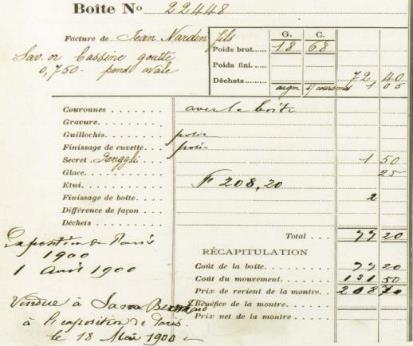 Boîte No 22448
Facture de Jean Nardin fils
G. C.
Sav. or Bassine goutte
Poids brut 18 68
0,750- ovale
Poids fini
Déchets 72 40
1 05
Couronnes avec la boîte
Gravure
Guillochis polie
Finissage de cuvette polie
Secret 1 50
Glace 25
Etui F 208,20
Finissage de boîte 2
Différence de façon
Déchets
Total 77 20
Exposition de Paris
1900
1 Avril 1900
RÉCAPITULATION
Coût de la boîte 77 20
Coût du mouvement 131 50
Prix de revient de la montre 208 70
Vendue à Sarra Bernard
Bénéfice de la montre
à l'exposition de Paris
Prix net de la montre
le 18 Mai 1900